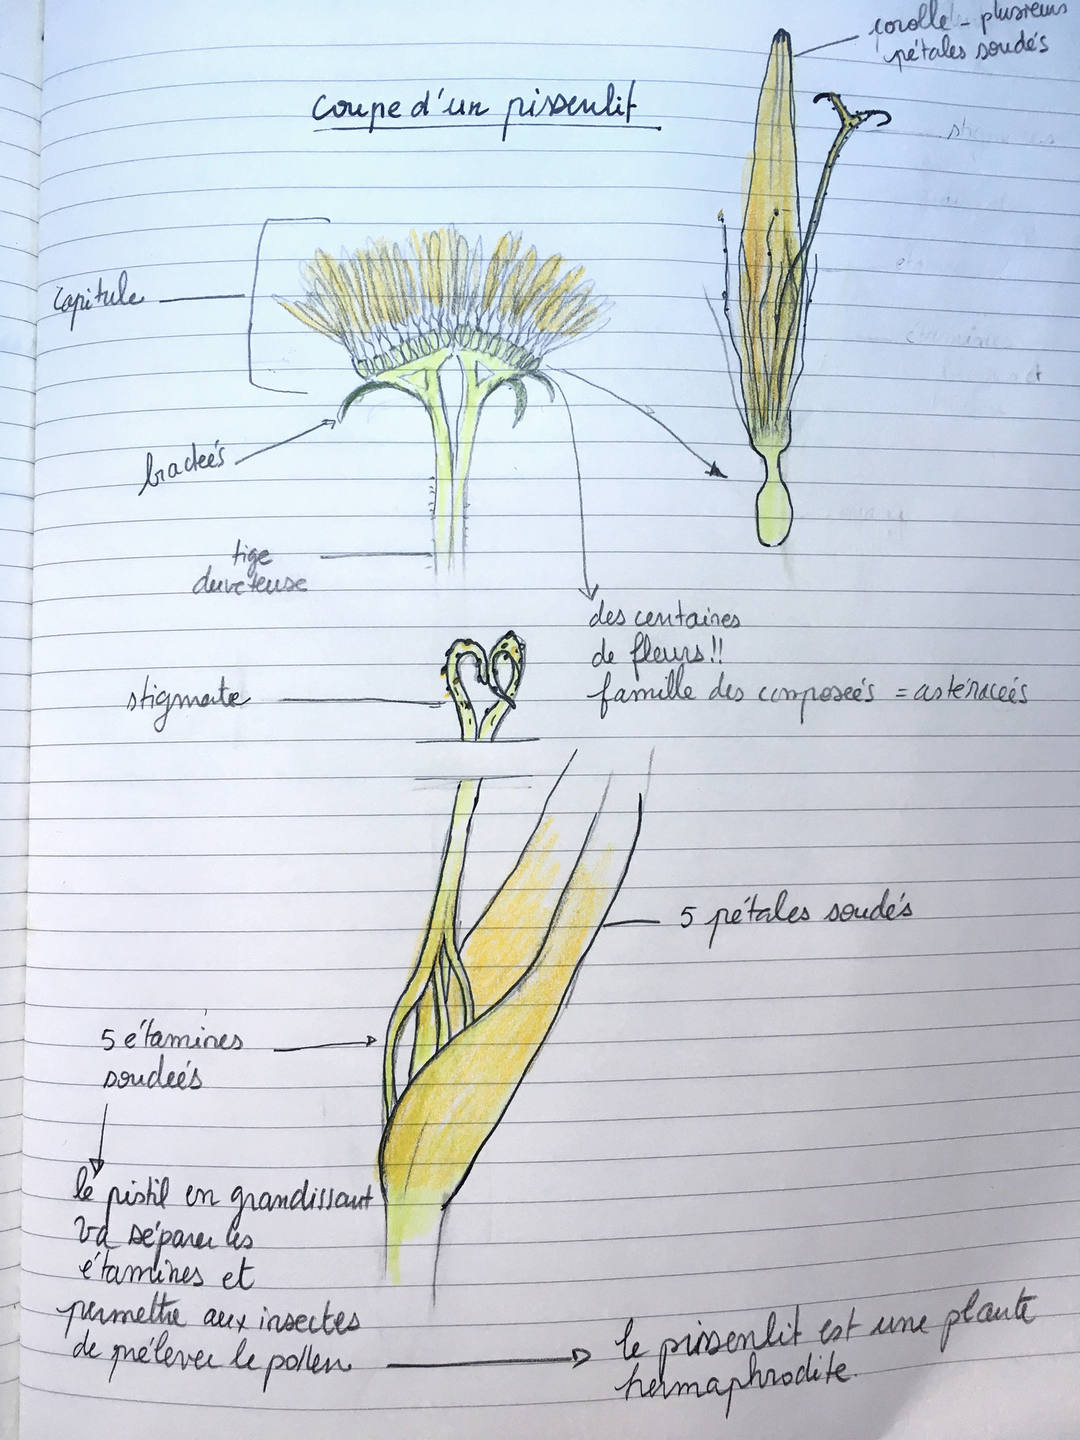 corolle - plusieurs
pétales soudés
Coupe d'un pissenlit
capitule
bractéés
tige
duveteuse
des centaines
de fleurs!!
famille des composéés = astéracéés
stigmate
5 pétales soudés
5 étamines
soudéés
le pistil en grandissant
va séparer les
étamines et
permettre aux insectes
de prélever le pollen
le pissenlit est une plante
hermaphrodite.